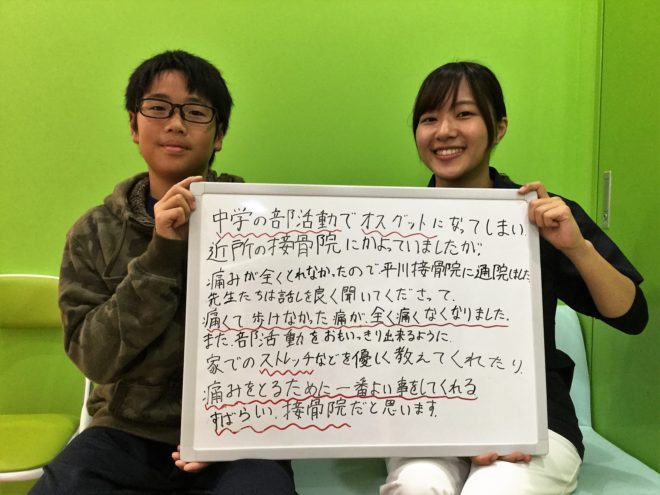 中学の部活動でオスグットになってしまい
近所の接骨院にかよっていましたが
痛みが全くとれなかったので平川接骨院に通院しました
先生たちは話しを良く聞いてくださって、
痛くて歩けなかった痛が、全く痛くなくなりました。
また、部活動をおもいっきり出来るように
家でのストレッチなどを優しく教えてくれたり、
痛みをとるために一番よい事をしてくれる
すばらしい、接骨院だと思います。